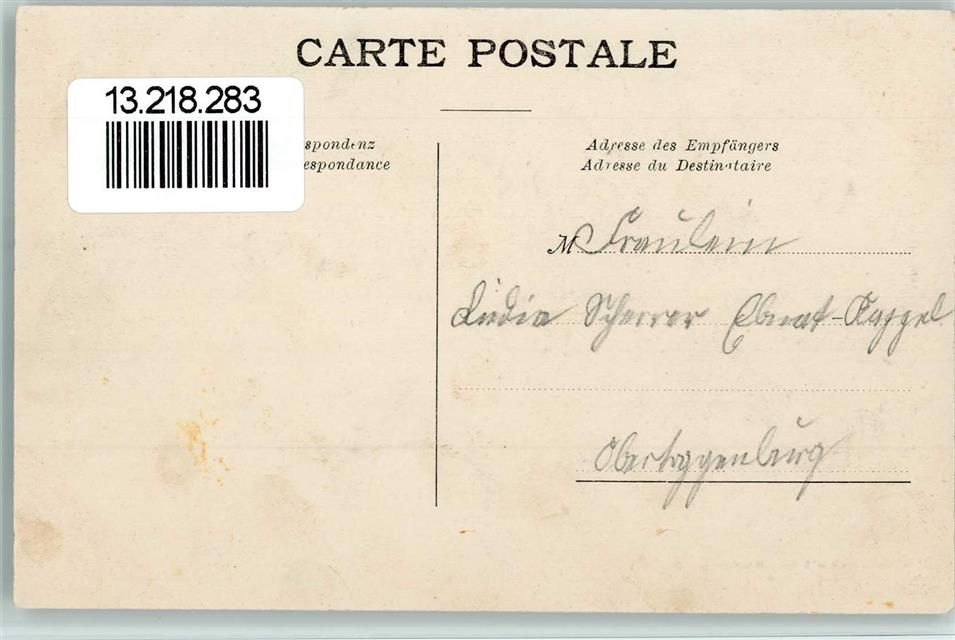 CARTE POSTALE
13.218.283
spondenz
espondance
Adresse des Empfängers
Adresse du Destinataire
M Fräulein
Lidia Scherrer Ebnat-Kappel
Obertoggenburg